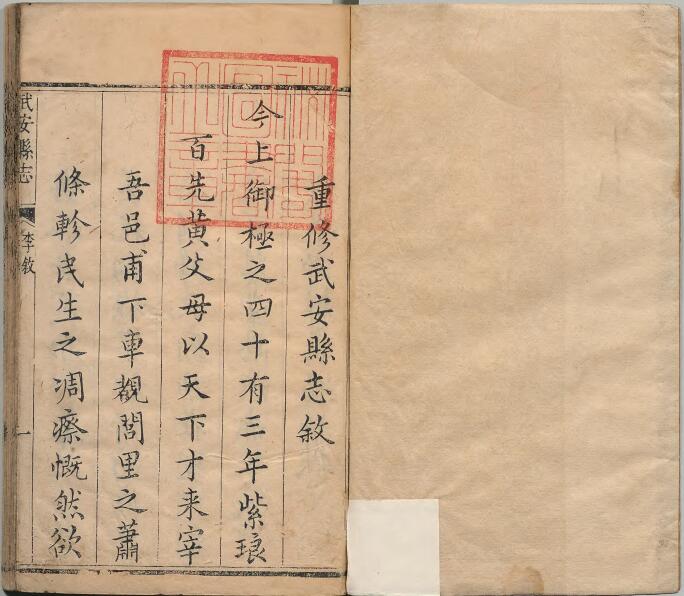 重修武安縣志敘
今上御極之四十有三年紫琅
百先黃父母以天下才来宰
吾邑甫下車覩閭里之蕭
條軫民生之凋瘵慨然欲
武安縣志
李敘
一